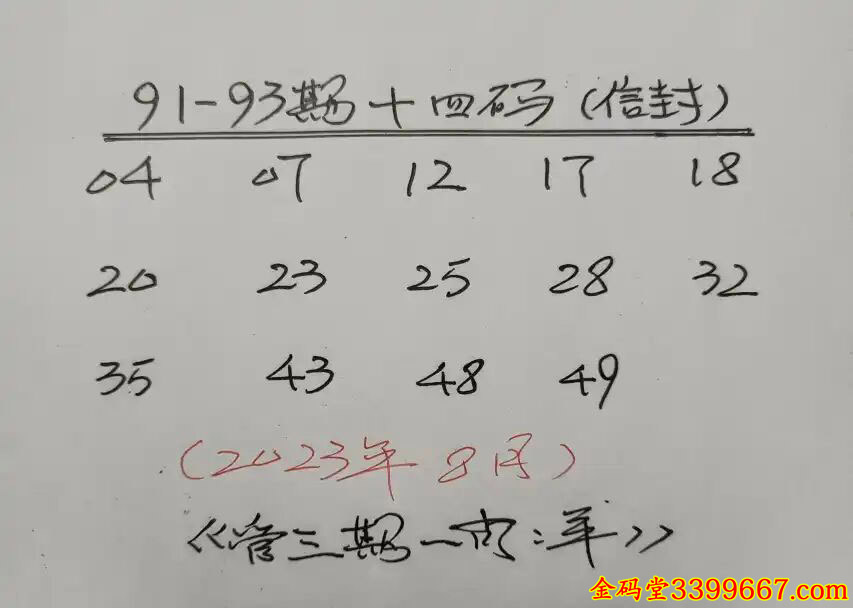 91-93期十四码(信封)
04 07 12 17 18
20 23 25 28 32
35 43 48 49
(2023年8月)
《管三期一肖:羊》
金码堂3399667.com